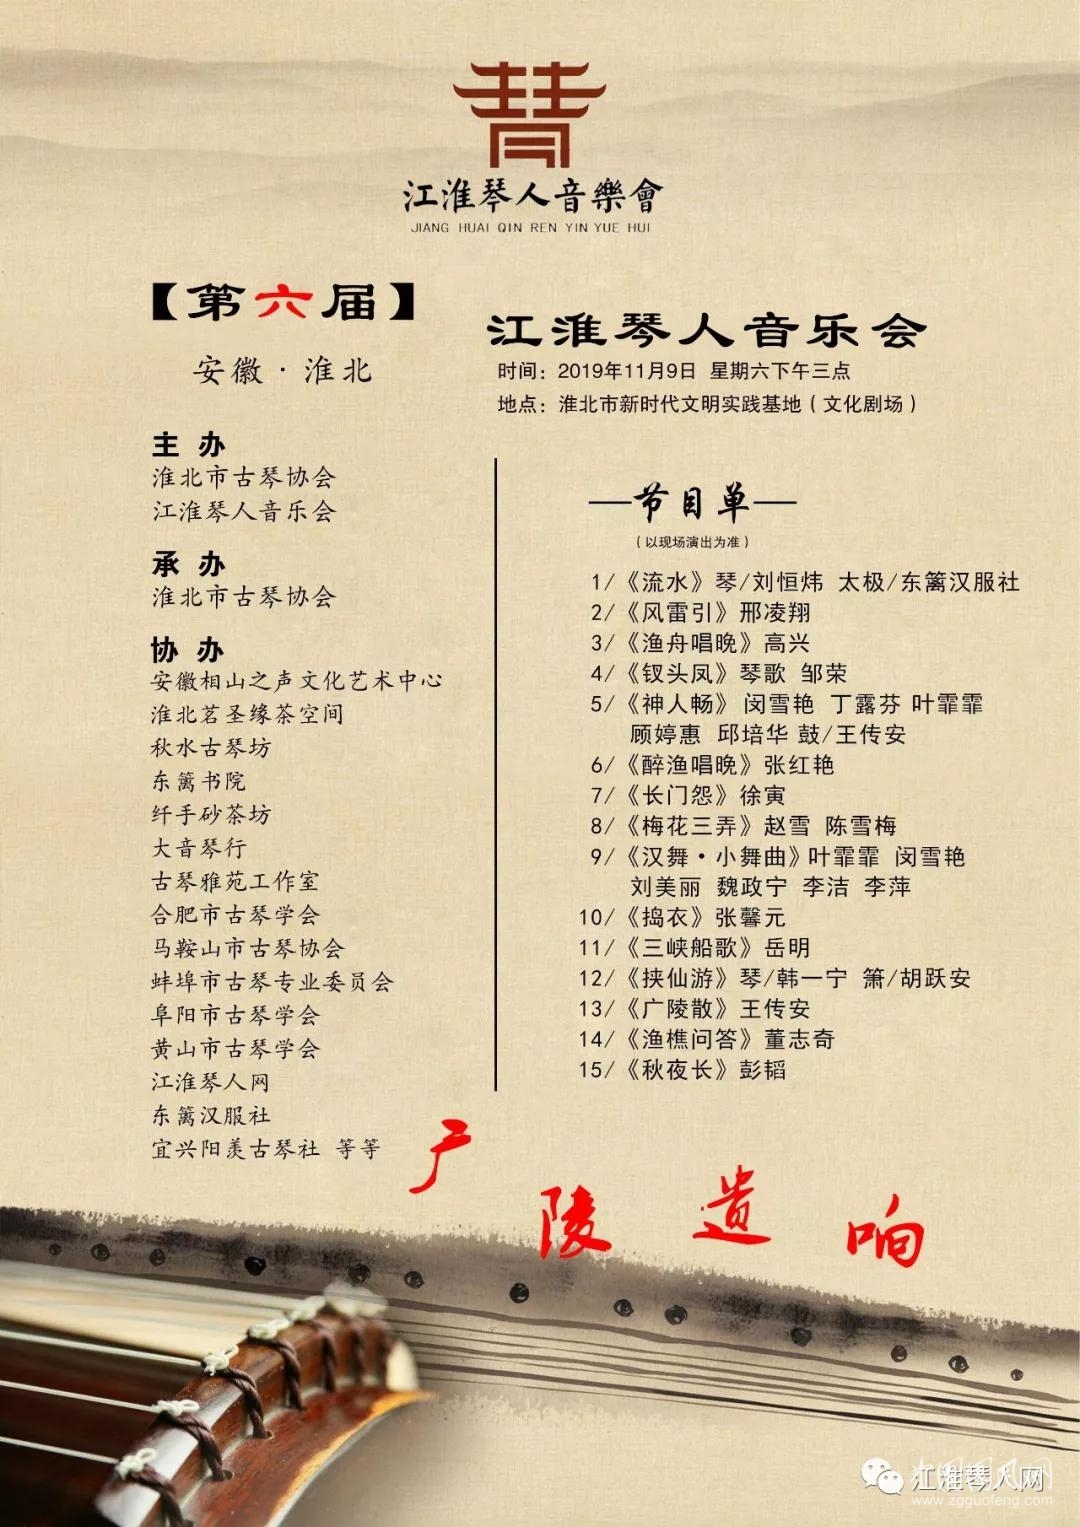 江淮琴人音樂會
JIANG HUAI QIN REN YIN YUE HUI
【第六届】
安徽·淮北
江淮琴人音乐会
时间：2019年11月9日 星期六下午三点
地点：淮北市新时代文明实践基地（文化剧场）
主 办
淮北市古琴协会
江淮琴人音乐会
承 办
淮北市古琴协会
协 办
安徽相山之声文化艺术中心
淮北茗圣缘茶空间
秋水古琴坊
东篱书院
纤手砂茶坊
大音琴行
古琴雅苑工作室
合肥市古琴学会
马鞍山市古琴协会
蚌埠市古琴专业委员会
阜阳市古琴学会
黄山市古琴学会
江淮琴人网
东篱汉服社
宜兴阳羡古琴社 等等
—节目单—
（以现场演出为准）
1/《流水》琴/刘恒炜 太极/东篱汉服社
2/《风雷引》邢凌翔
3/《渔舟唱晚》高兴
4/《钗头凤》琴歌 邹荣
5/《神人畅》 闵雪艳 丁露芬 叶霏霏
顾婷惠 邱培华 鼓/王传安
6/《醉渔唱晚》张红艳
7/《长门怨》徐寅
8/《梅花三弄》赵雪 陈雪梅
9/《汉舞·小舞曲》叶霏霏 闵雪艳
刘美丽 魏政宁 李洁 李萍
10/《捣衣》张馨元
11/《三峡船歌》岳明
12/《挟仙游》琴/韩一宁 箫/胡跃安
13/《广陵散》王传安
14/《渔樵问答》董志奇
15/《秋夜长》彭韬
广陵遗响
江淮琴人网
www.zgguofeng.com